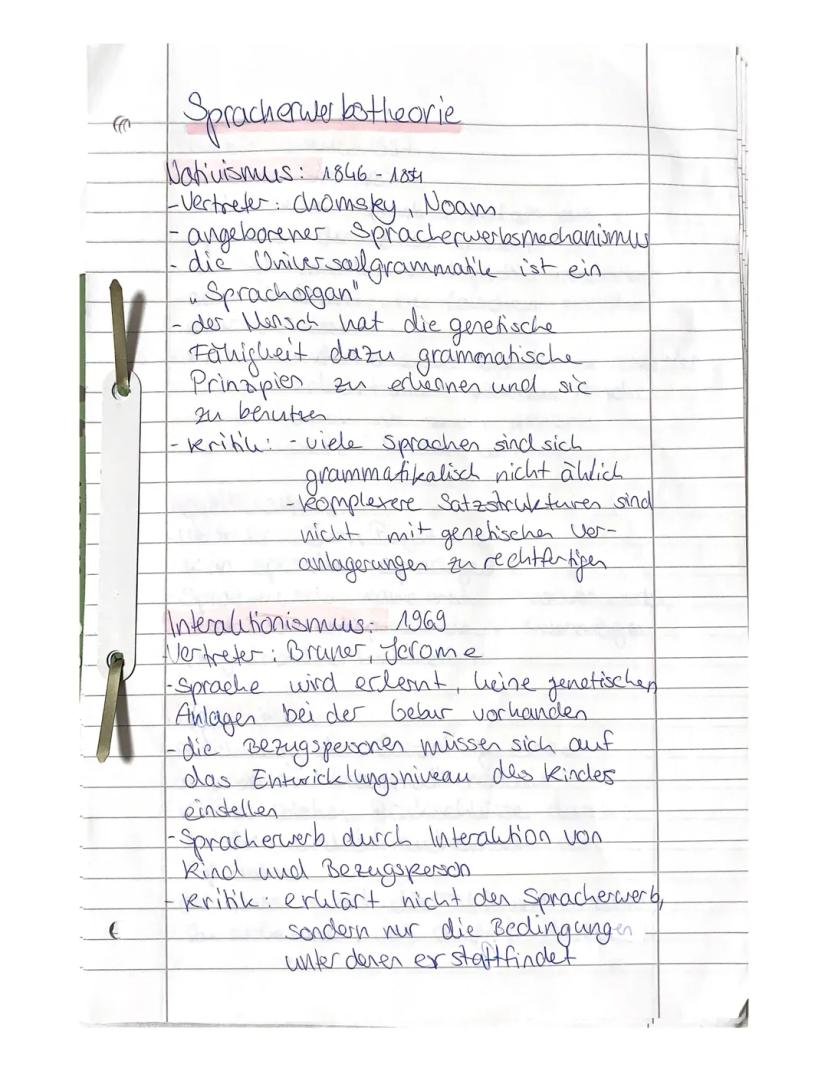 Spracherwerbstheorie
Nativismus: 1846 -
-Vertreter: Chomsky, Noam
- angeborener Spracherwerbsmechanismus
- die Universalgrammatik ist ein
"Sprachorgan"
- der Mensch hat die genetische
Fähigkeit dazu grammatische
Prinzipien zu erkennen und sie
zu benutzen
- Kritik: - viele Sprachen sind sich
grammatikalisch nicht ählich
- komplexere Satzstrukturen sind
nicht mit genetischen Ver-
anlagerungen zu rechtfertigen
Interaktionismus: 1969
Vertreter: Bruner, Jerome
-Sprache wird erlernt, keine genetischen
Anlagen bei der Gebur vorhanden
- die Bezugspersonen müssen sich auf
das Entwicklungsniveau des Kindes
einstellen
-Spracherwerb durch Interaktion von
Kind und Bezugsperson
- Kritik: erklärt nicht den Spracherwerb,
sondern nur die Bedingungen
unter denen er stattfindet